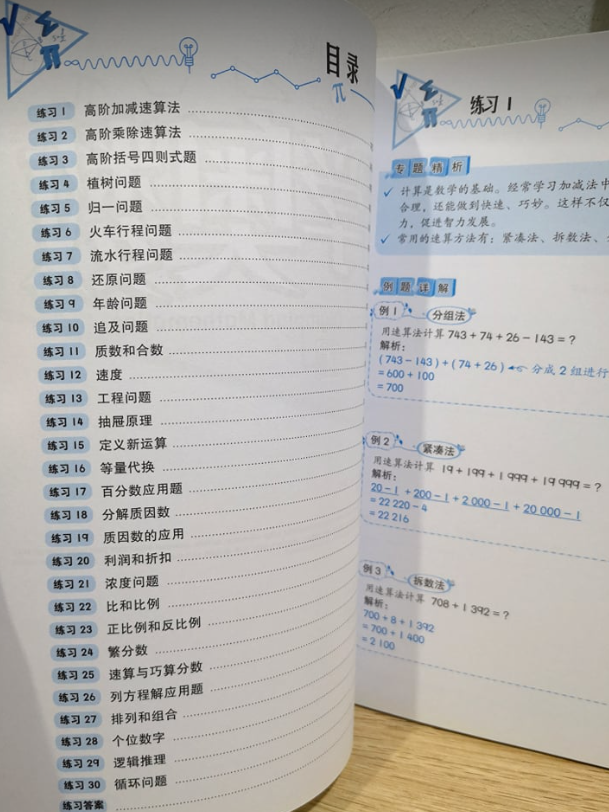 目录
练习 1 高阶加减速算法
练习 2 高阶乘除速算法
练习 3 高阶括号四则式题
练习 4 植树问题
练习 5 归一问题
练习 6 火车行程问题
练习 7 流水行程问题
练习 8 还原问题
练习 9 年龄问题
练习 10 追及问题
练习 11 质数和合数
练习 12 速度
练习 13 工程问题
练习 14 抽屉原理
练习 15 定义新运算
练习 16 等量代换
练习 17 百分数应用题
练习 18 分解质因数
练习 19 质因数的应用
练习 20 利润和折扣
练习 21 浓度问题
练习 22 比和比例
练习 23 正比例和反比例
练习 24 繁分数
练习 25 速算与巧算分数
练习 26 列方程解应用题
练习 27 排列和组合
练习 28 个位数字
练习 29 逻辑推理
练习 30 循环问题
练习答案
练习 1
专题精析
✓ 计算是数学的基础。经常学习加减法中
合理，还能做到快速、巧妙。这样不仅
力，促进智力发展。
✓ 常用的速算方法有：紧凑法、拆数法、
例题详解
例 1 分组法
用速算法计算 743 + 74 + 26 − 143 = ?
解析：
(743 − 143) + (74 + 26) 分成 2 组进行
= 600 + 100
= 700
例 2 紧凑法
用速算法计算 19 + 199 + 1 999 + 19 999 = ?
解析：
20 − 1 + 200 − 1 + 2 000 − 1 + 20 000 − 1
= 22 220 − 4
= 22 216
例 3 拆数法
用速算法计算 708 + 1 392 = ?
解析：
700 + 8 + 1 392
= 700 + 1 400
= 2 100